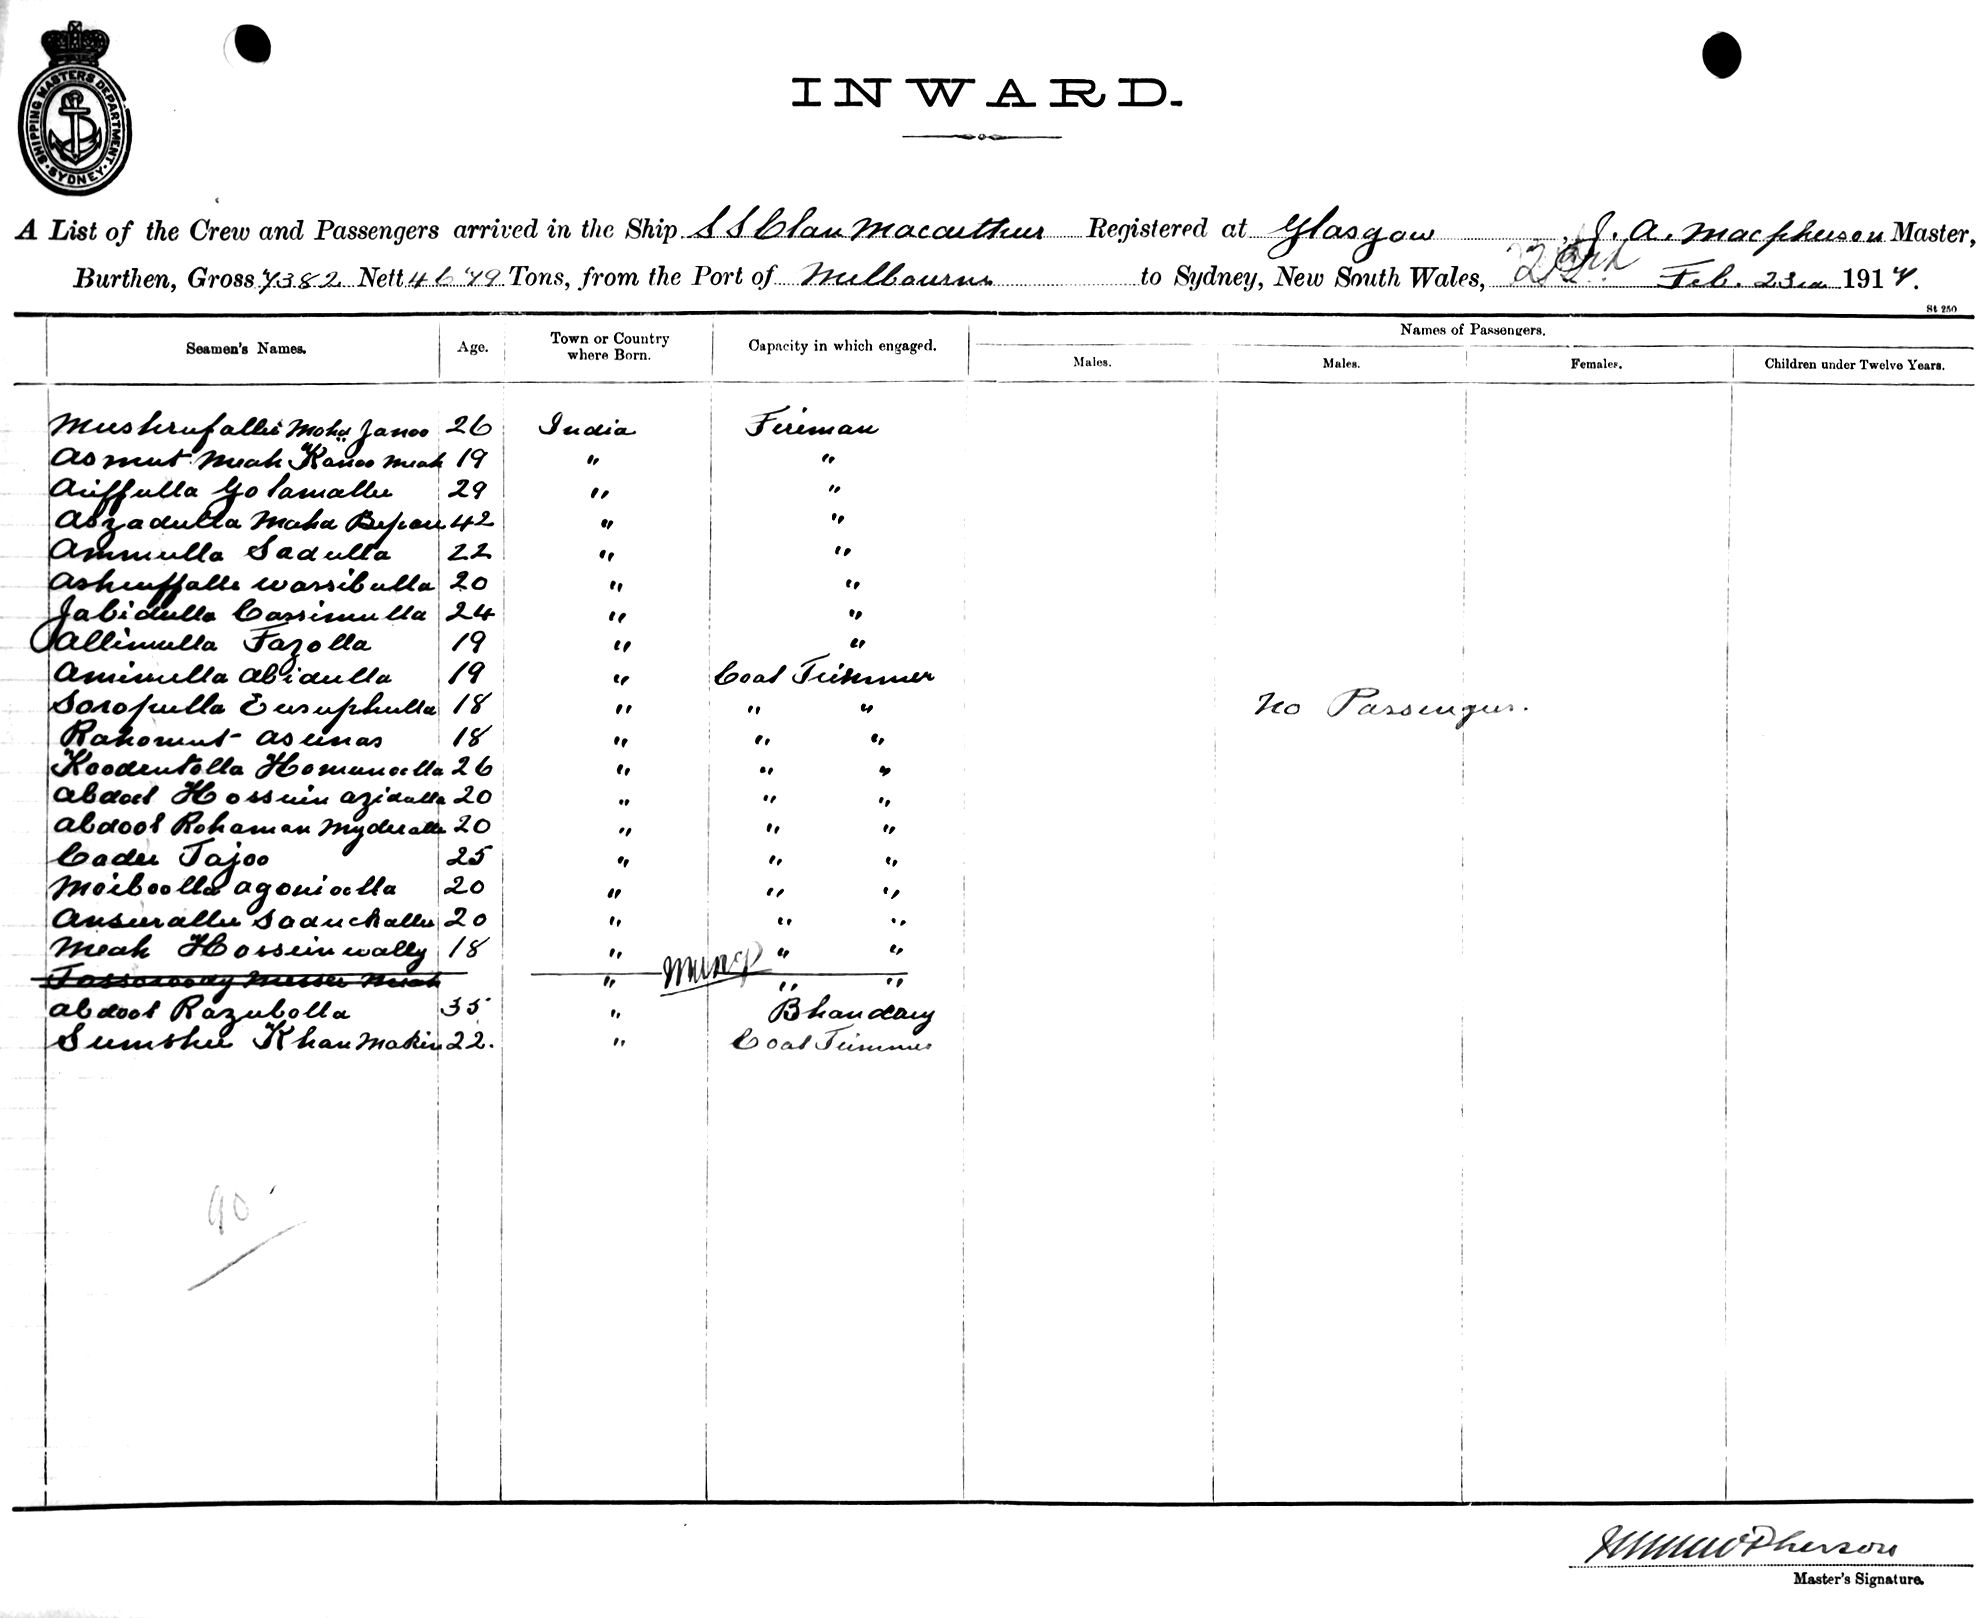 SHIPPING MASTERS DEPARTMENT · SYDNEY ·
INWARD.
A List of the Crew and Passengers arrived in the Ship S S Clan Macarthur Registered at Glasgow, J. A. Macpherson Master,
Burthen, Gross 7382 Nett 4679 Tons, from the Port of Melbourne to Sydney, New South Wales, Feb. 23rd 1914.
St 250
Seamen's Names. Age. Town or Country where Born. Capacity in which engaged. Names of Passengers.
Males. Males. Females. Children under Twelve Years.
Mushrufallie Mohd Janoo 26 India Fireman
Asmut Meah Kanoo Meah 19 " "
Ariffulla Golamallie 29 " "
Aszadulla Maha Bepari 42 " "
Ammulla Sadulla 22 " "
Ashruffalli Wassibulla 20 " "
Jabidulla Cassimulla 24 " "
Allimulla Fazolla 19 " "
Amimulla Abidulla 19 " Coal Trimmer
Soropulla Eusuphulla 18 " " " No Passengers.
Rahomut Asunas 18 " " "
Koodentolla Homanoolla 26 " " "
Abdool Hossein Azidulla 20 " " "
Abdool Rohaman Myderalli 20 " " "
Cader Tajoo 25 " " "
Moiboolla Agonioolla 20 " " "
Ansurallie Saduckallie 20 " " "
Meah Hossein Wally 18 " " "
" " "
Abdool Razubolla 35 " Bhandary
Sumsher Khan Makin 22. " Coal Trimmer
90
McPherson
Master's Signature.